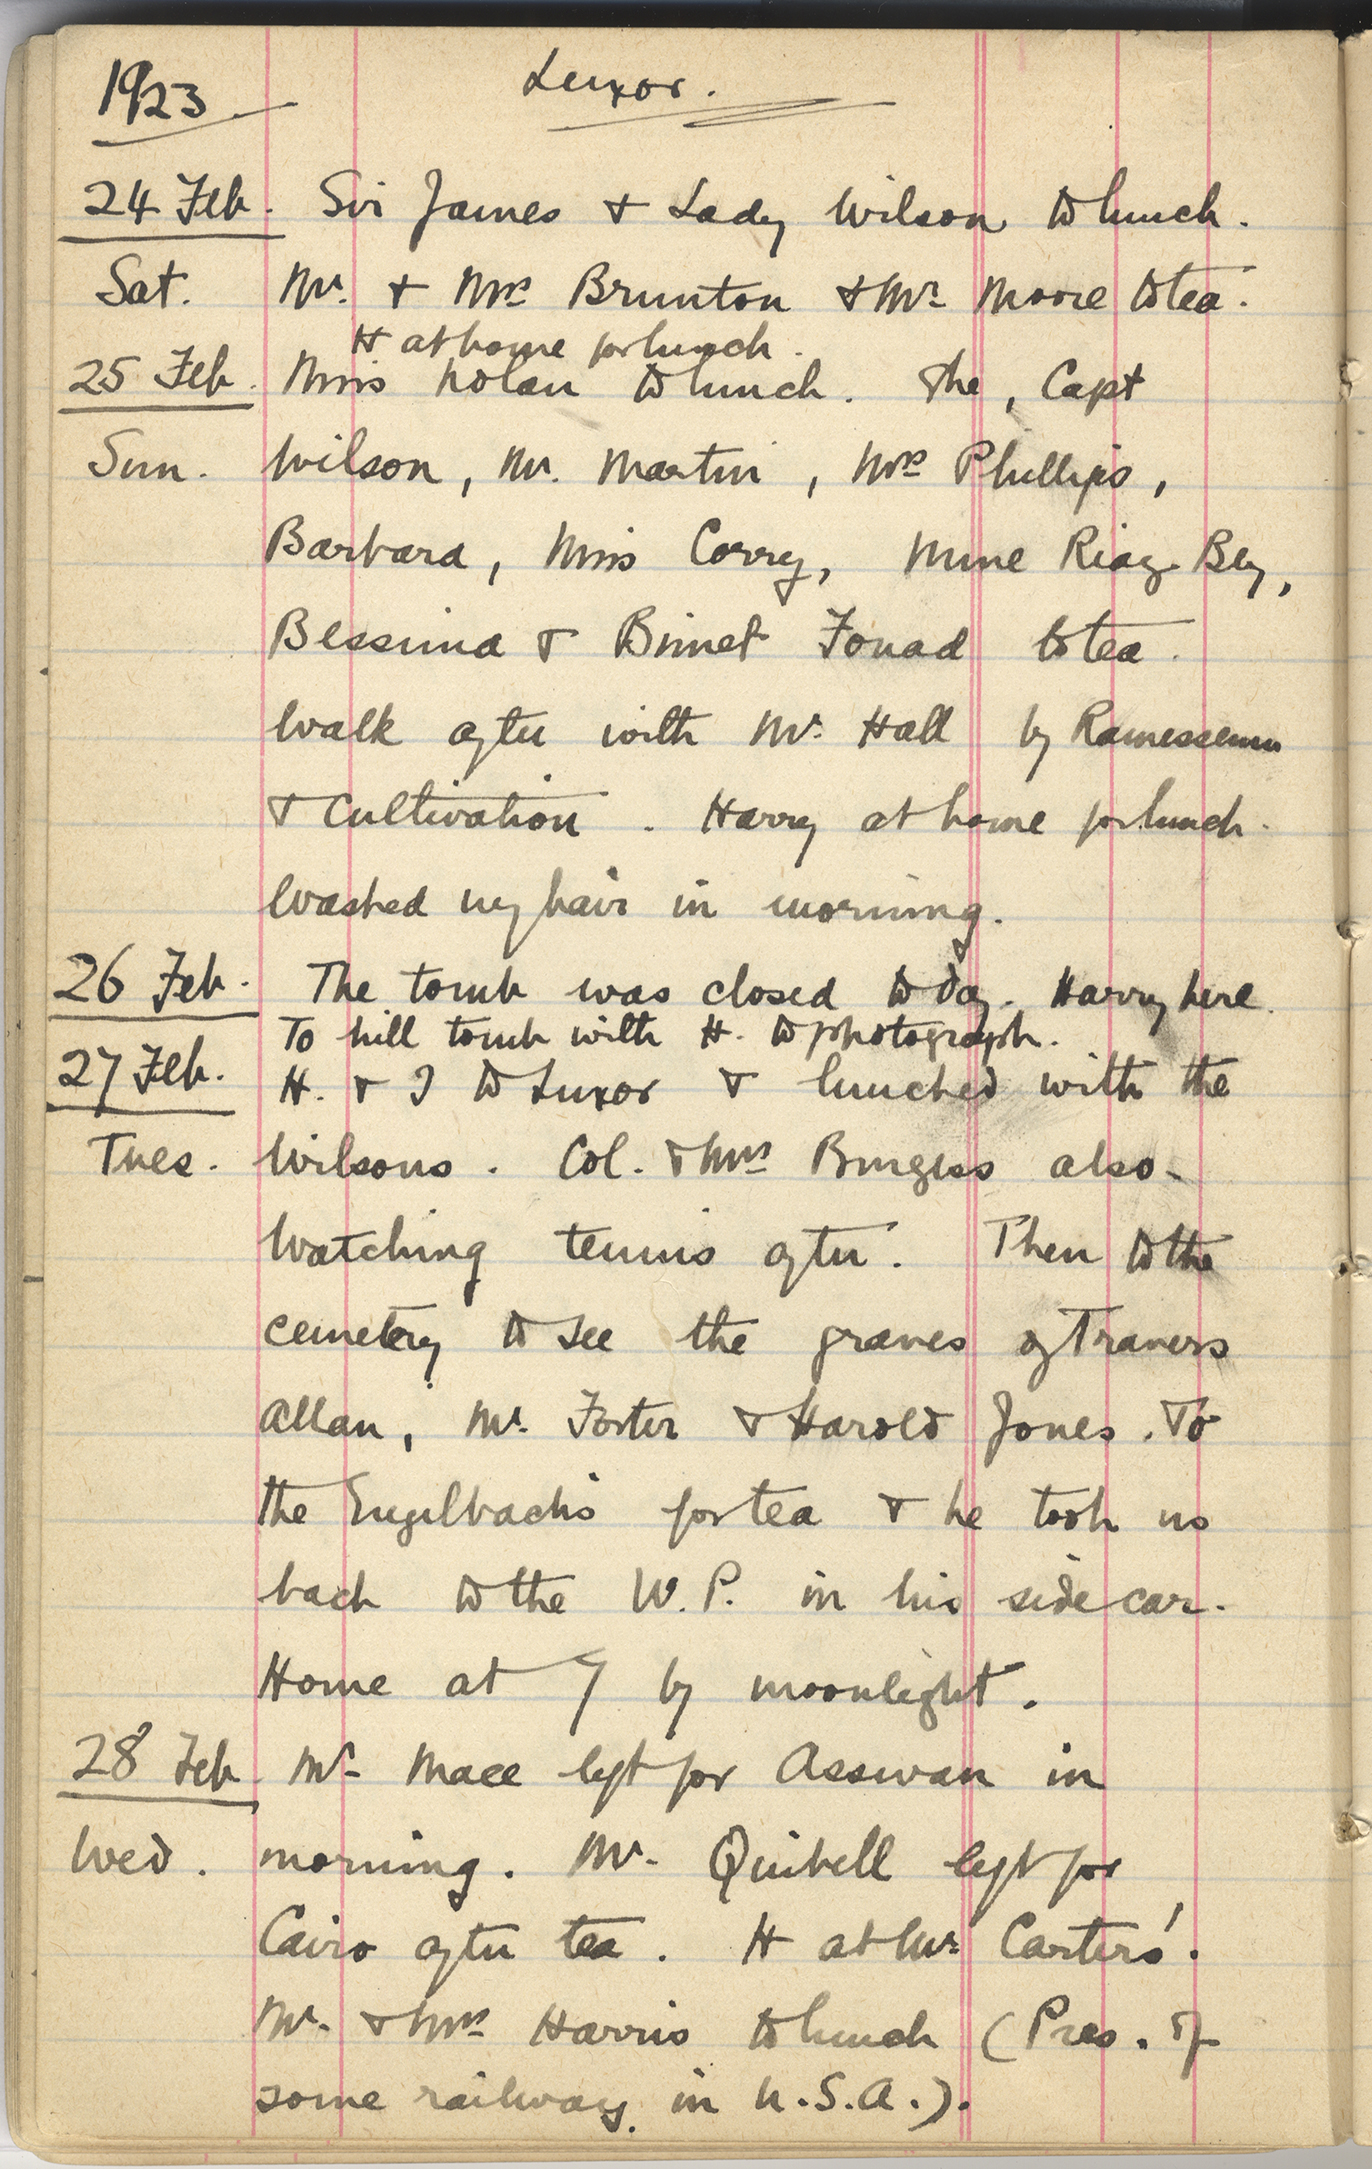 1923 Luxor.
24 Feb. Sir James & Lady Wilson to lunch.
Sat. Mr. & Mrs Brunton & Mr Moore to tea.
H at home for lunch.
25 Feb. Miss Nolan to lunch. She, Capt
Sun. Wilson, Mr. Martin, Mrs Phillips,
Barbara, Miss Corry, Mme Riaz Bey,
Bessima & Binet Fouad to tea.
Walk after with Mr. Hall by Ramesseum
& cultivation. Harry at home for lunch.
Washed my hair in morning.
26 Feb. The tomb was closed to day. Harry here.
To hill tomb with H. to photograph.
27 Feb. H. & I to Luxor & lunched with the
Tues. Wilsons. Col. & Mrs Burgess also.
Watching tennis after. Then to the
cemetery to see the graves of Travers
Allan, Mr. Forter & Harold Jones. To
the Engelbachs for tea & he took us
back to the W.P. in his side car.
Home at 7 by moonlight.
28 Feb. Mr. Mace left for Asswan in
Wed. morning. Mr. Quibell left for
Cairo after tea. H at Mr Carters'.
Mr. & Mrs Harris to lunch (Pres. of
some railway in U.S.A.).